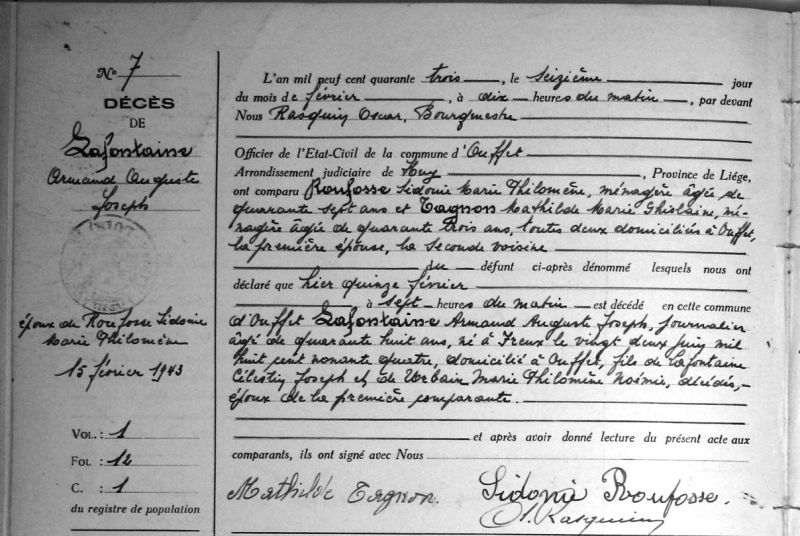 No 7
DÉCÈS
DE
Lafontaine
Armand Auguste
Joseph
époux de Roufosse Sidonie
Marie Philomène
15 février 1943
VOL. : 1
FOL : 12
C. : 1
du registre de population
L'an mil neuf cent quarante trois, le seizième jour
du mois de février, à dix heures du matin, par devant
Nous Rasquin Oscar, Bourgmestre
Officier de l'Etat-Civil de la commune d'Ouffet
Arrondissement judiciaire de Huy, Province de Liége,
ont comparu Roufosse Sidonie Marie Philomène, ménagère âgée de
quarante sept ans et Tagnon Mathilde Marie Ghislaine, mé-
nagère âgée de quarante trois ans, toutes deux domiciliées à Ouffet,
la première épouse, la seconde voisine
du défunt ci-après dénommé lesquels nous ont
déclaré que hier quinze février
à sept heures du matin est décédé en cette commune
d'Ouffet Lafontaine Armand Auguste Joseph, journalier
âgé de quarante huit ans, né à le vingt deux juin mil
huit cent nonante quatre, domicilié à Ouffet, fils de Lafontaine
Célestin Joseph et de Urbain Marie Philomène Noémie, décédés,-
époux de la première comparante.
et après avoir donné lecture du présent acte aux
comparants, ils ont signé avec Nous
Mathilde Tagnon. Sidonie Roufosse.
O. Rasquin